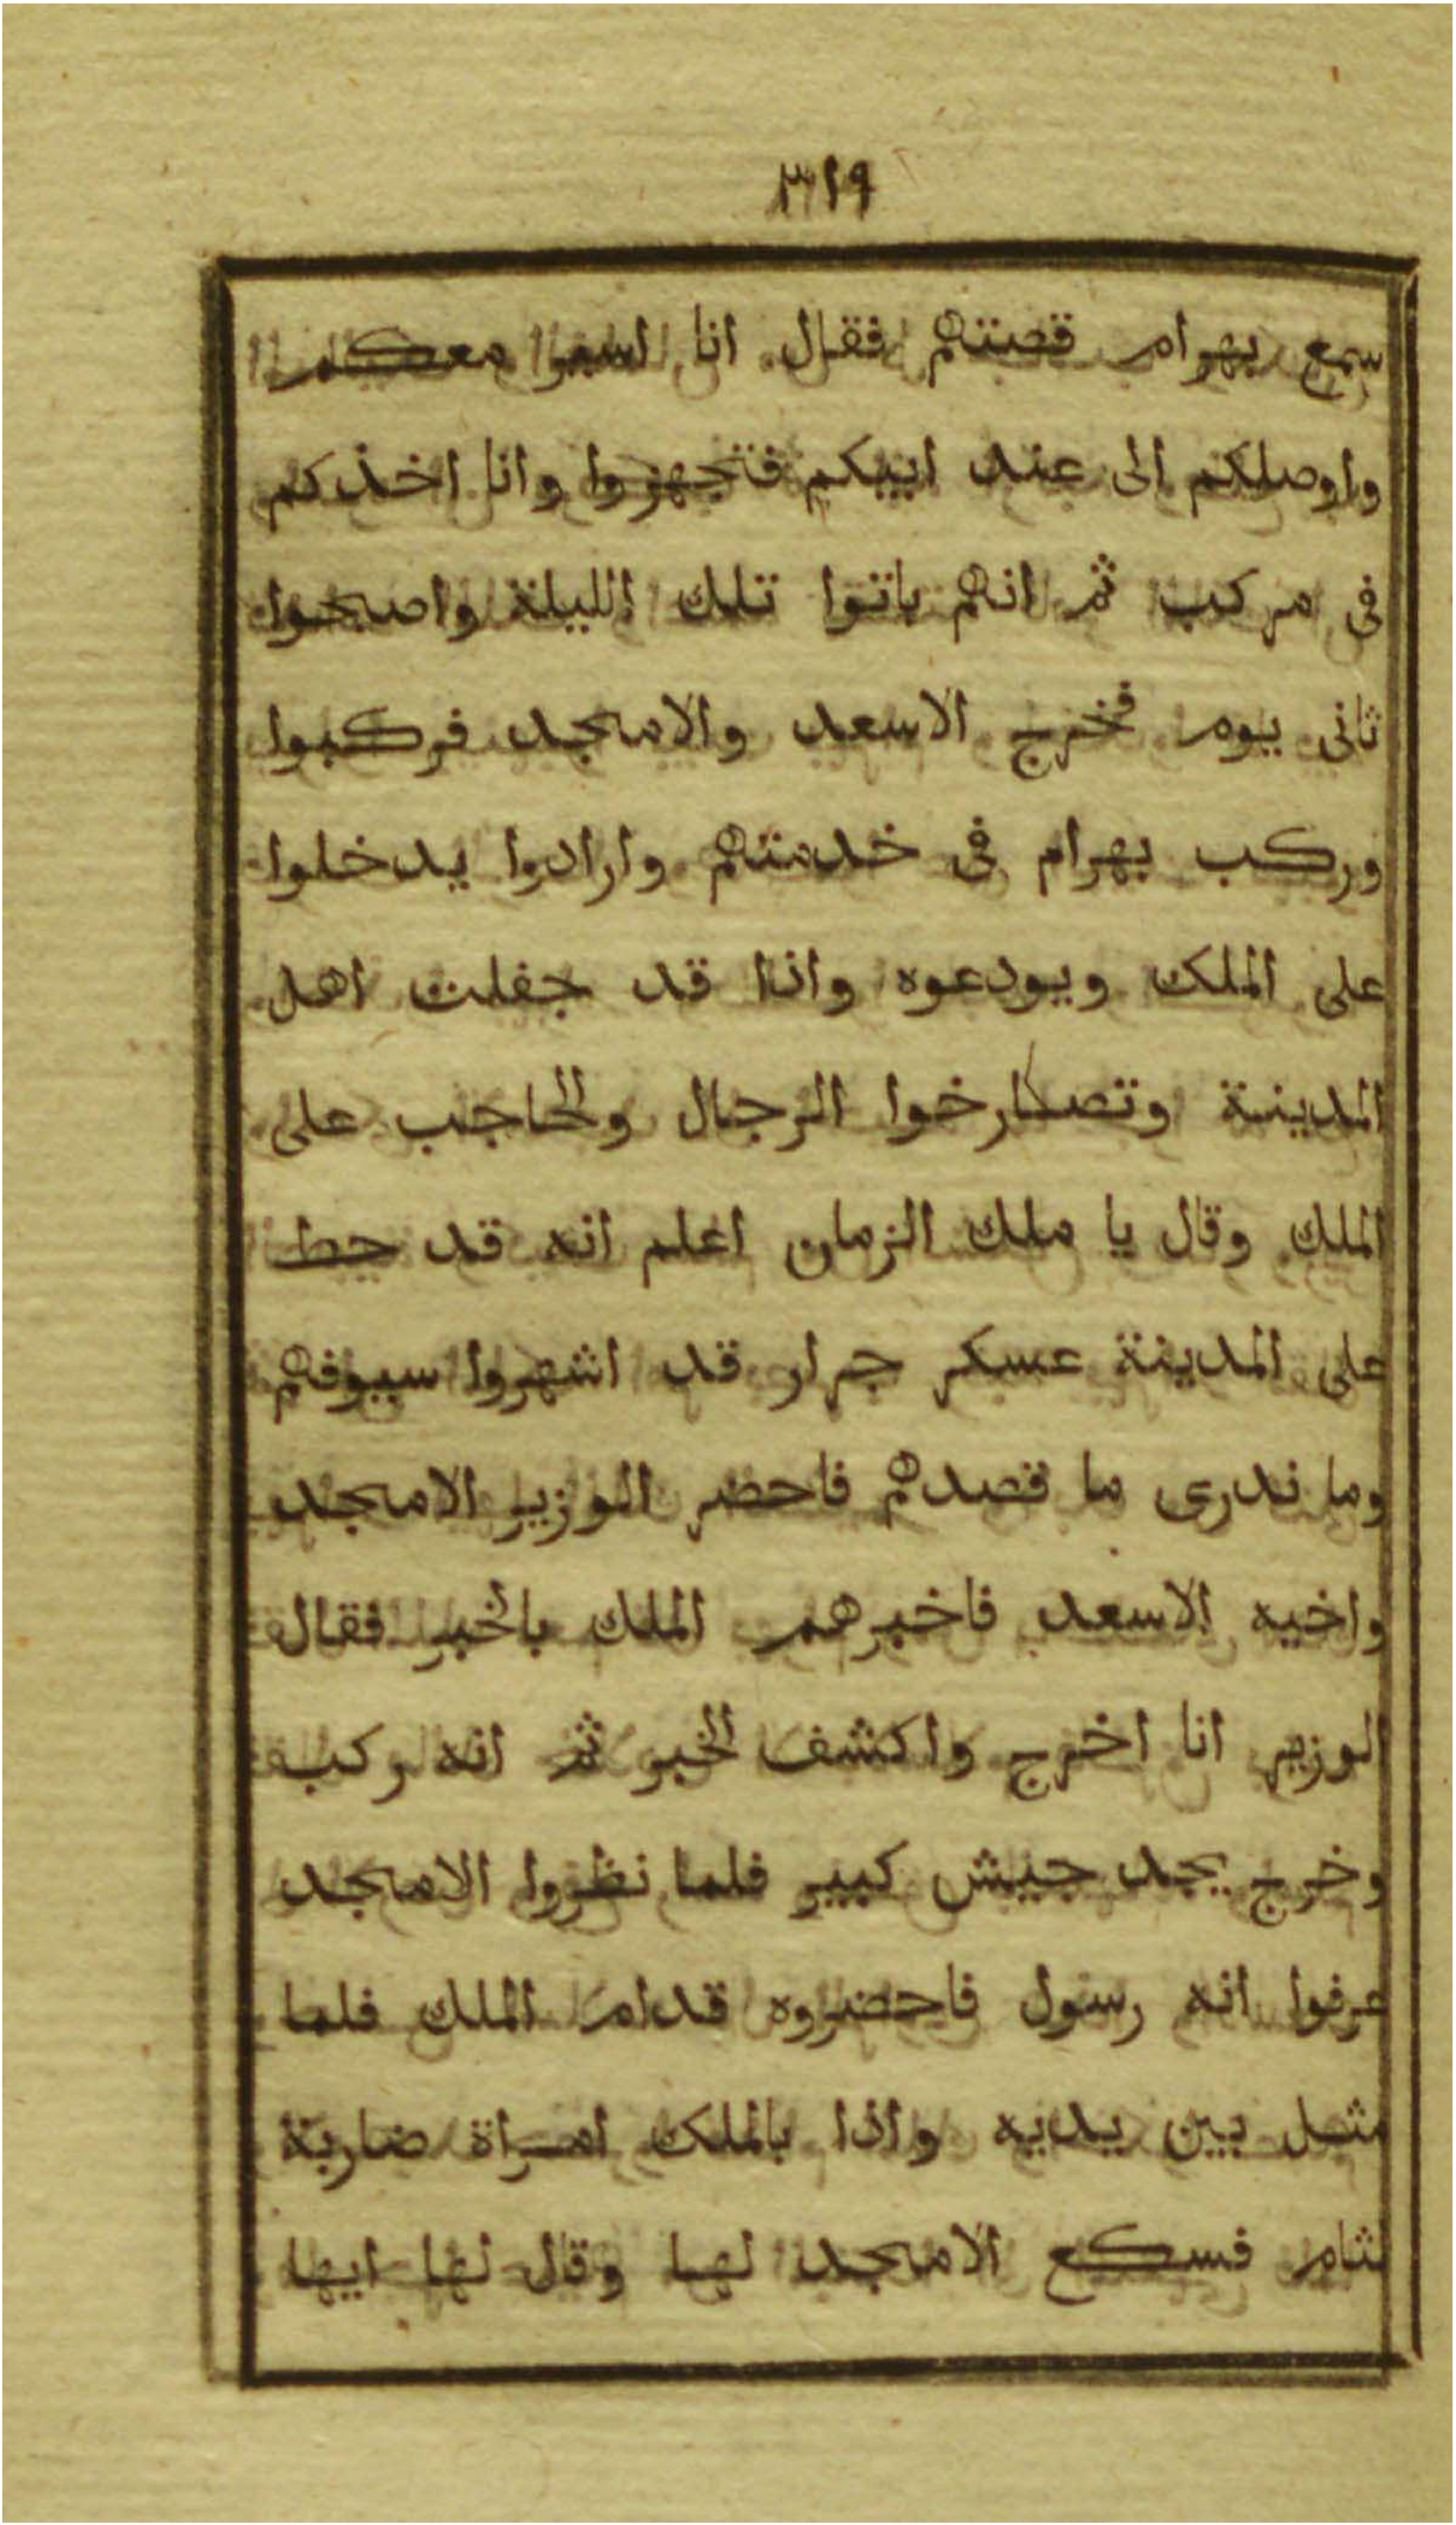 ٣١٩
سمع بهرام قصتهم فقال انا اسير معكم
واوصلكم الى عند ابيكم فتجهزوا وانا اخذكم
فى مركب ثم انهم باتوا تلك الليلة واصبحوا
ثانى يوم فخرج الاسعد والامجد فركبوا
وركب بهرام فى خدمتهم وارادوا يدخلوا
على الملك ويودعوه واذا قد جفلت اهل
المدينة وتصارخوا الرجال والحاجب على
الملك وقال يا ملك الزمان اعلم انه قد حط
على المدينة عسكر جرار قد اشهروا سيوفهم
وما ندرى ما قصدهم فاحضر الوزير الامجد
واخيه الاسعد فاخبرهم الملك بالخبر فقال
الوزير انا اخرج واكشف الخبر ثم انه ركب
وخرج يجد جيش كبير فلما نظروا الامجد
عرفوا انه رسول فاحضروه قدام الملك فلما
مثل بين يديه واذا بالملك امراة ضاربة
لثام فسكع الامجد لها وقال لها ايها